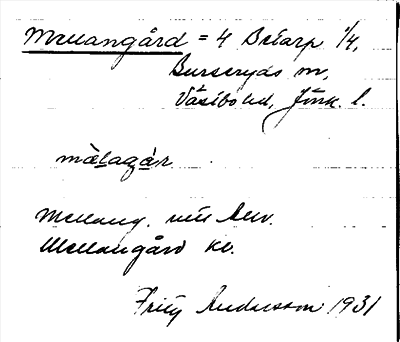 Mellangård = 4 Betarp 1/4,
Burseryds sn,
Västbo hd, Jönk. l.
mä̀lagár
Mellang.
Mellangård kb.
Fritz Andersson 1931